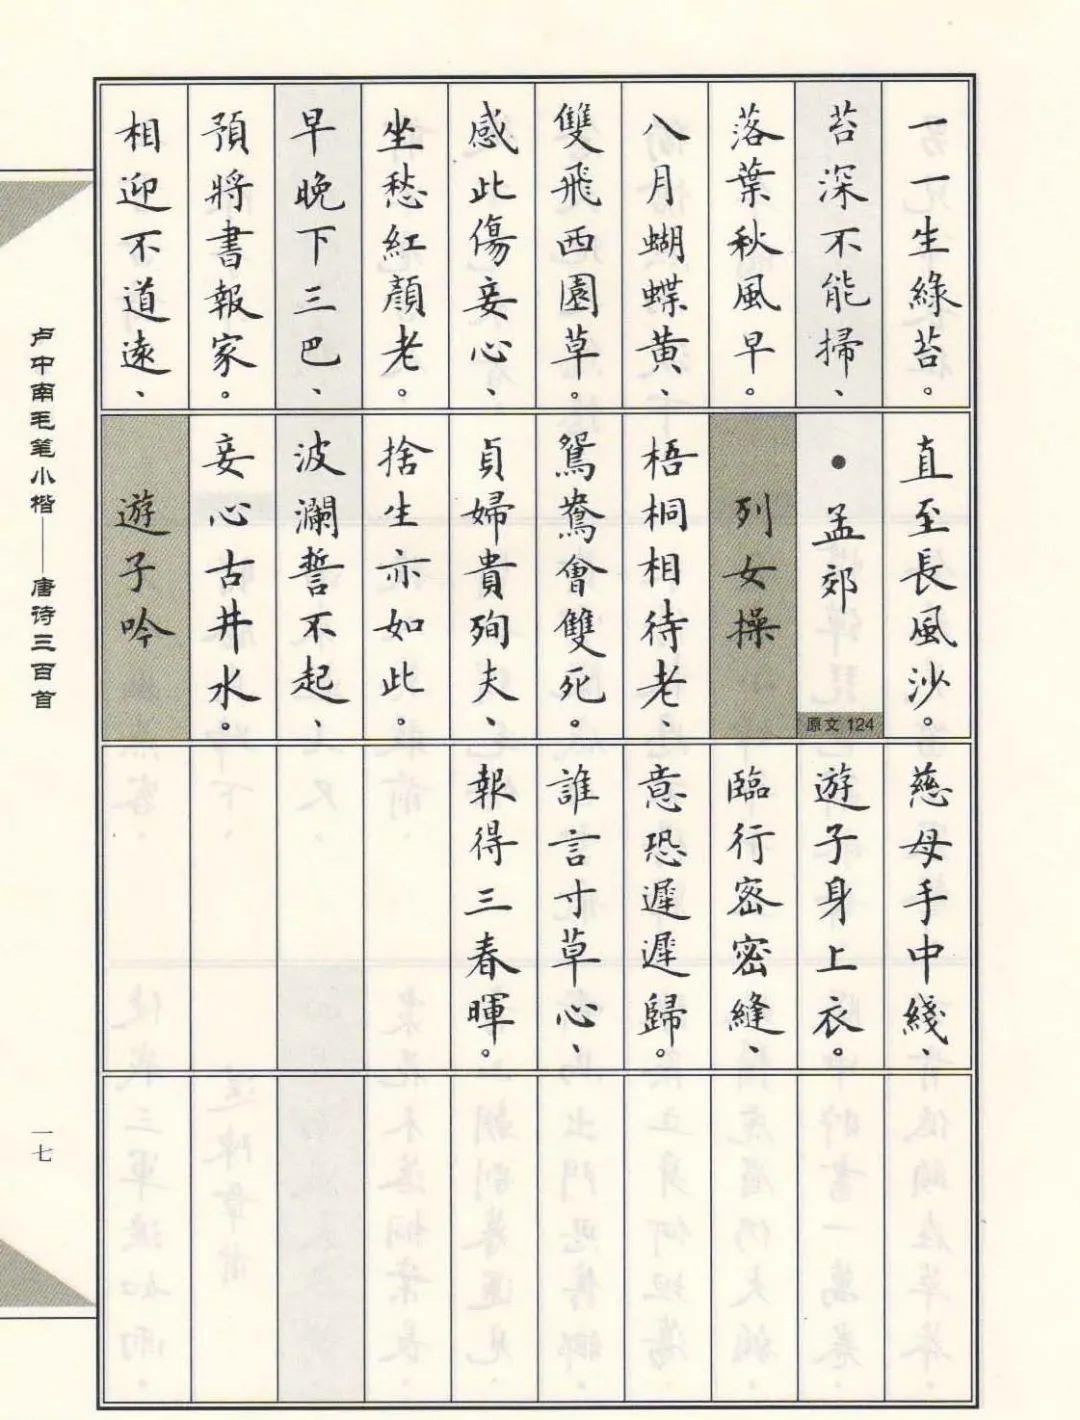 一一生綠苔。
苔深不能掃、
落葉秋風早。
八月蝴蝶黄、
雙飛西園草。
感此傷妾心、
坐愁紅顏老。
早晚下三巴、
預將書報家。
相迎不道遠、
直至長風沙。
•孟郊
原文 124
列女操
梧桐相待老、
鴛鴦會雙死。
貞婦貴殉夫、
捨生亦如此。
波瀾誓不起、
妾心古井水。
遊子吟
慈母手中綫、
遊子身上衣。
臨行密密縫、
意恐遲遲歸。
誰言寸草心、
報得三春暉。
卢中南毛笔小楷——唐诗三百首
一七